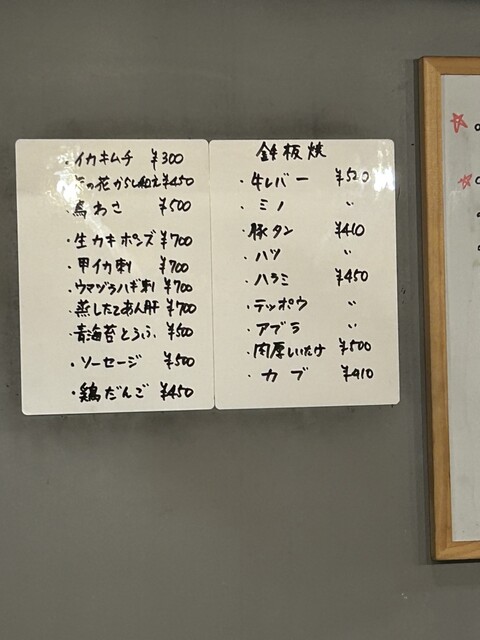 ・イカキムチ ¥300
の花からし和え ¥450
・鳥わさ ¥500
・生カキポンズ ¥700
・甲イカ刺 ¥700
・ウマヅラハギ刺 ¥700
・蒸したてあん肝 ¥700
・青海苔とうふ ¥500
・ソーセージ ¥500
・鶏だんご ¥450
鉄板焼
・牛レバー ¥520
・ミノ 〃
・豚タン ¥410
・ハツ 〃
・ハラミ ¥450
・テッポウ 〃
・アブラ 〃
・肉厚しいたけ ¥500
・カブ ¥410